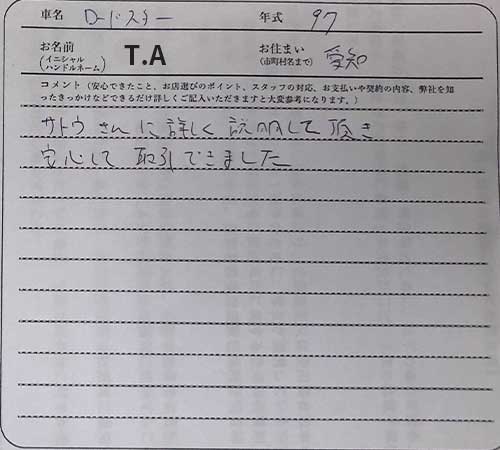 車名 ロードスター 年式 97
お名前 (イニシャル ハンドルネーム) T.A お住まい (市町村名まで) 愛知
コメント(安心できたこと、お店選びのポイント、スタッフの対応、お支払いや契約の内容、弊社を知
ったきっかけなどできるだけ詳しくご記入いただきますと大変参考になります。)
サトウさんに詳しく説明して頂き
安心して取引できました